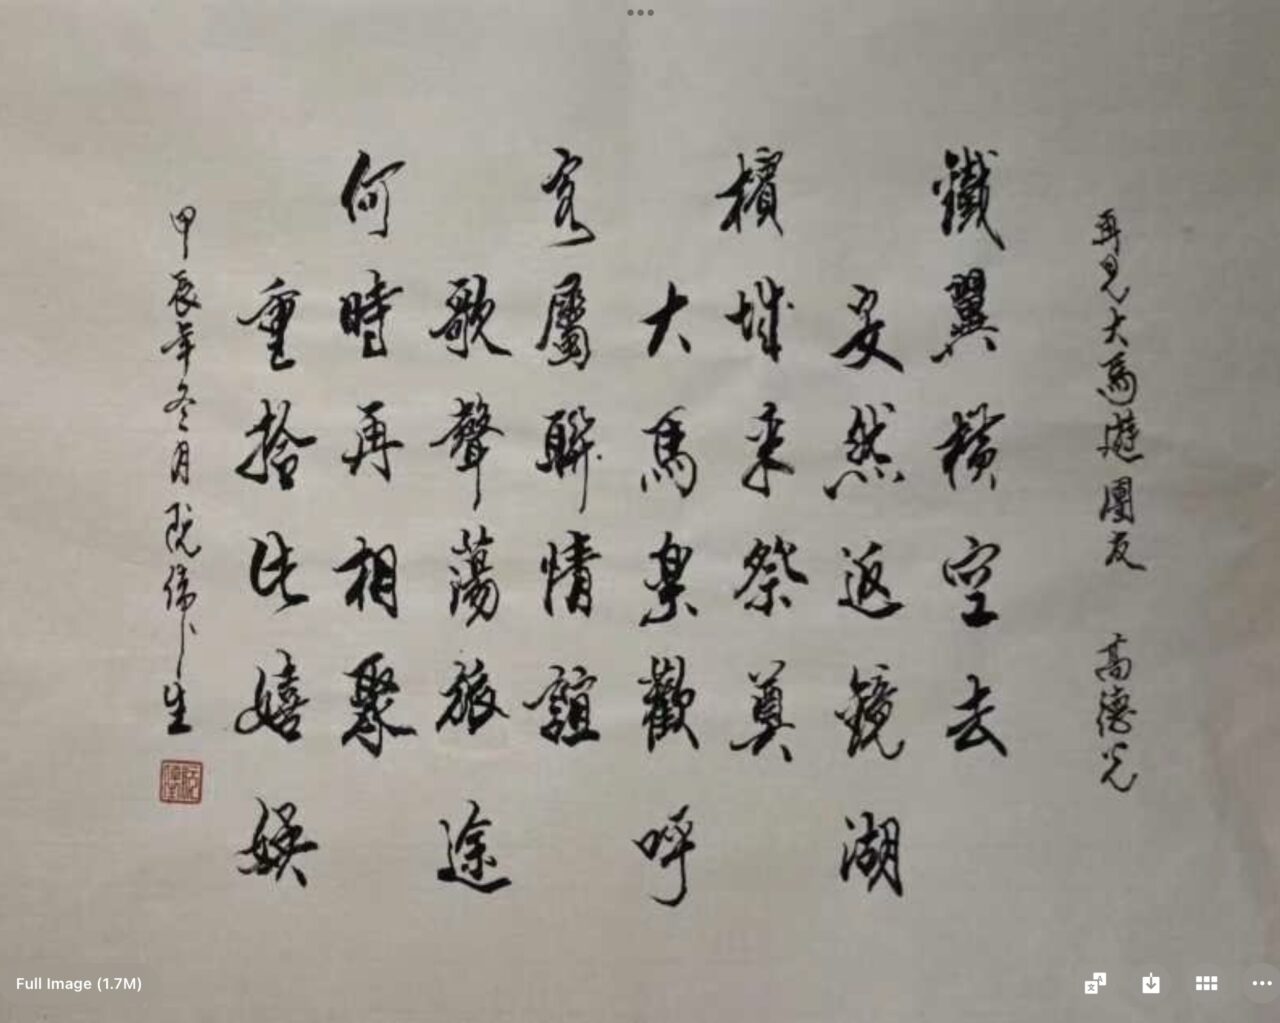 再見大馬遊團友 高德光
鐵翼橫空去
安然返鏡湖
檳城来祭奠
大馬樂歡呼
客屬聯情誼
歌聲蕩旅途
何時再相聚
重拾此嬉娛
甲辰年冬月阮偉生
Full Image (1.7M)